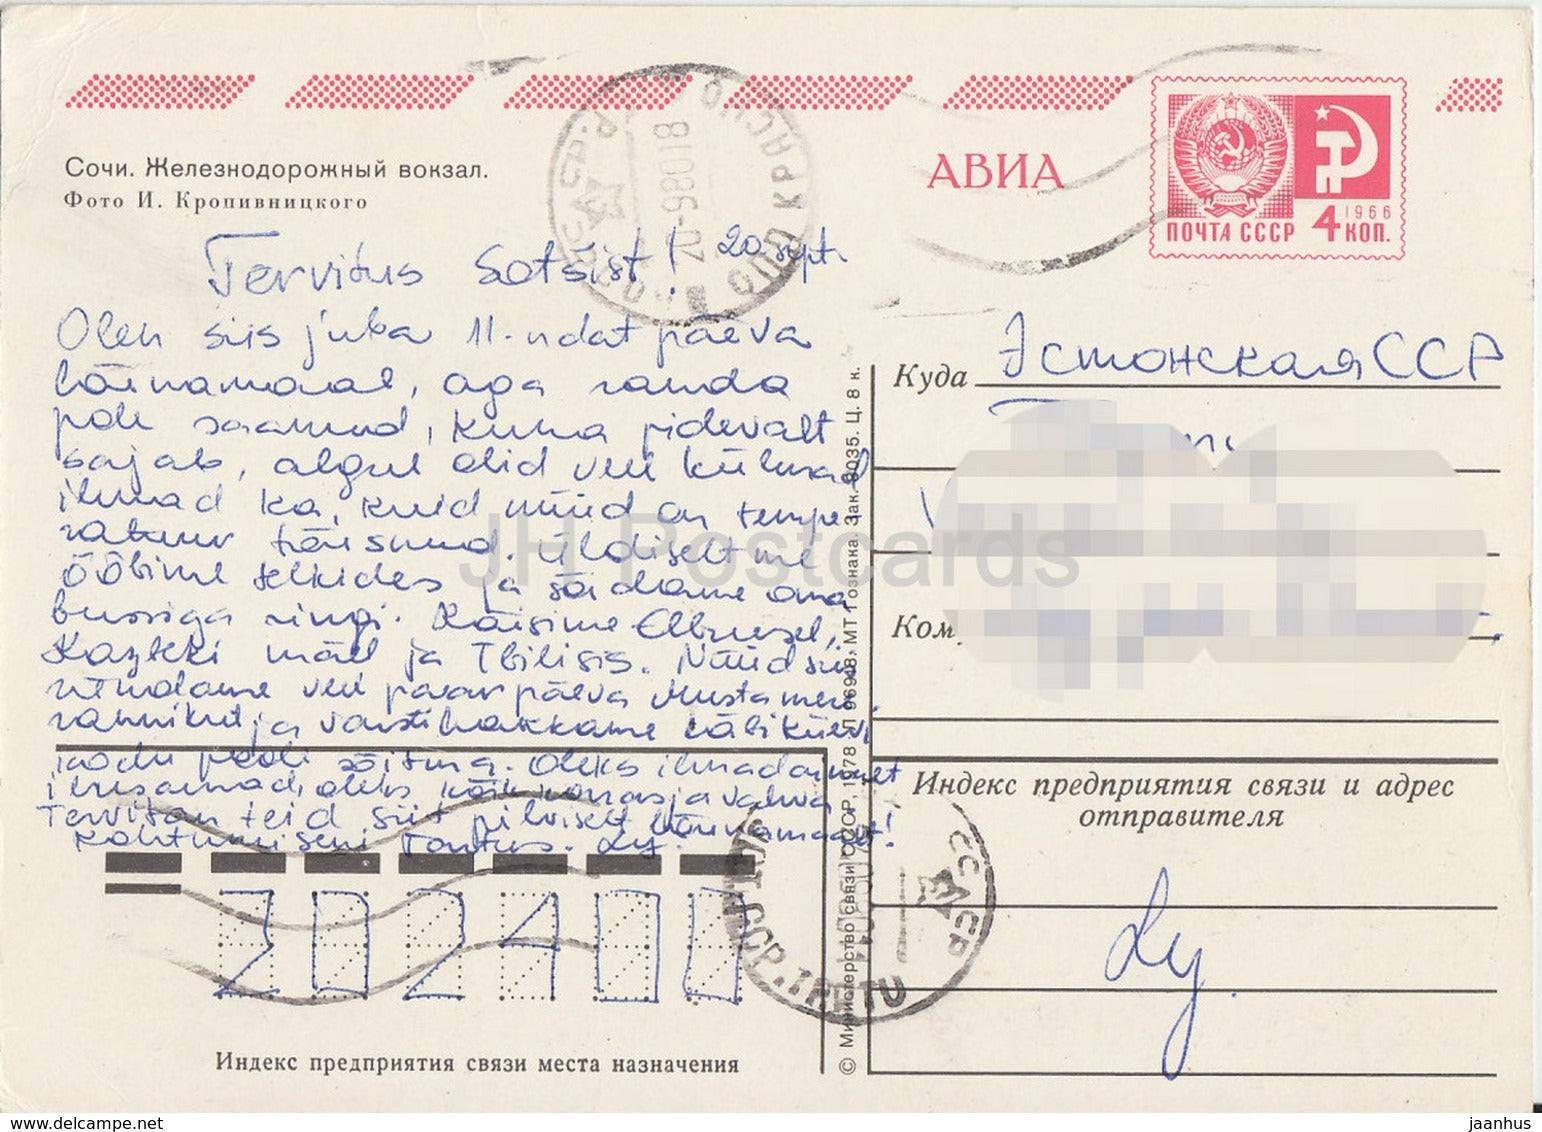 АВИА
ПОЧТА СССР 4 КОП.
1966
Сочи. Железнодорожный вокзал.
Фото И. Кропивницкого
Tervitus Sotšist! 20 sept.
Olen siis juba 11-ndat päeva
lõunamaal, aga randa
pole saanud, kuna pidevalt
sajab, algul olid veel külmad
ilmad ka, kuid nüüd on tempe
ratuur tõusnud. Üldiselt me
ööbime telkides ja sõidame oma
bussiga ringi. Käisime Elbrusel,
Kazbeki mäel ja Tbilisis. Nüüd siis
naudime veel paar päeva Musta mere
rannikut ja varsti hakkame läbi Kiievi
kodu poole sõitma. Oleks ilmad ainult
ilusamad, oleks kõik korras ja vahva
Tervitan teid siit pilviselt lõunamaalt!
Kohtumiseni Tartus. Ly.
Куда Эстонская ССР
Индекс предприятия связи и адрес
отправителя
Ly.
202400
Индекс предприятия связи места назначения
© Министерство связи СССР, 1978 МТ Гознака. Зак. 8035. Ц. 8 к.
TARTU
JH Postcards
www.delcampe.net
jaanhus